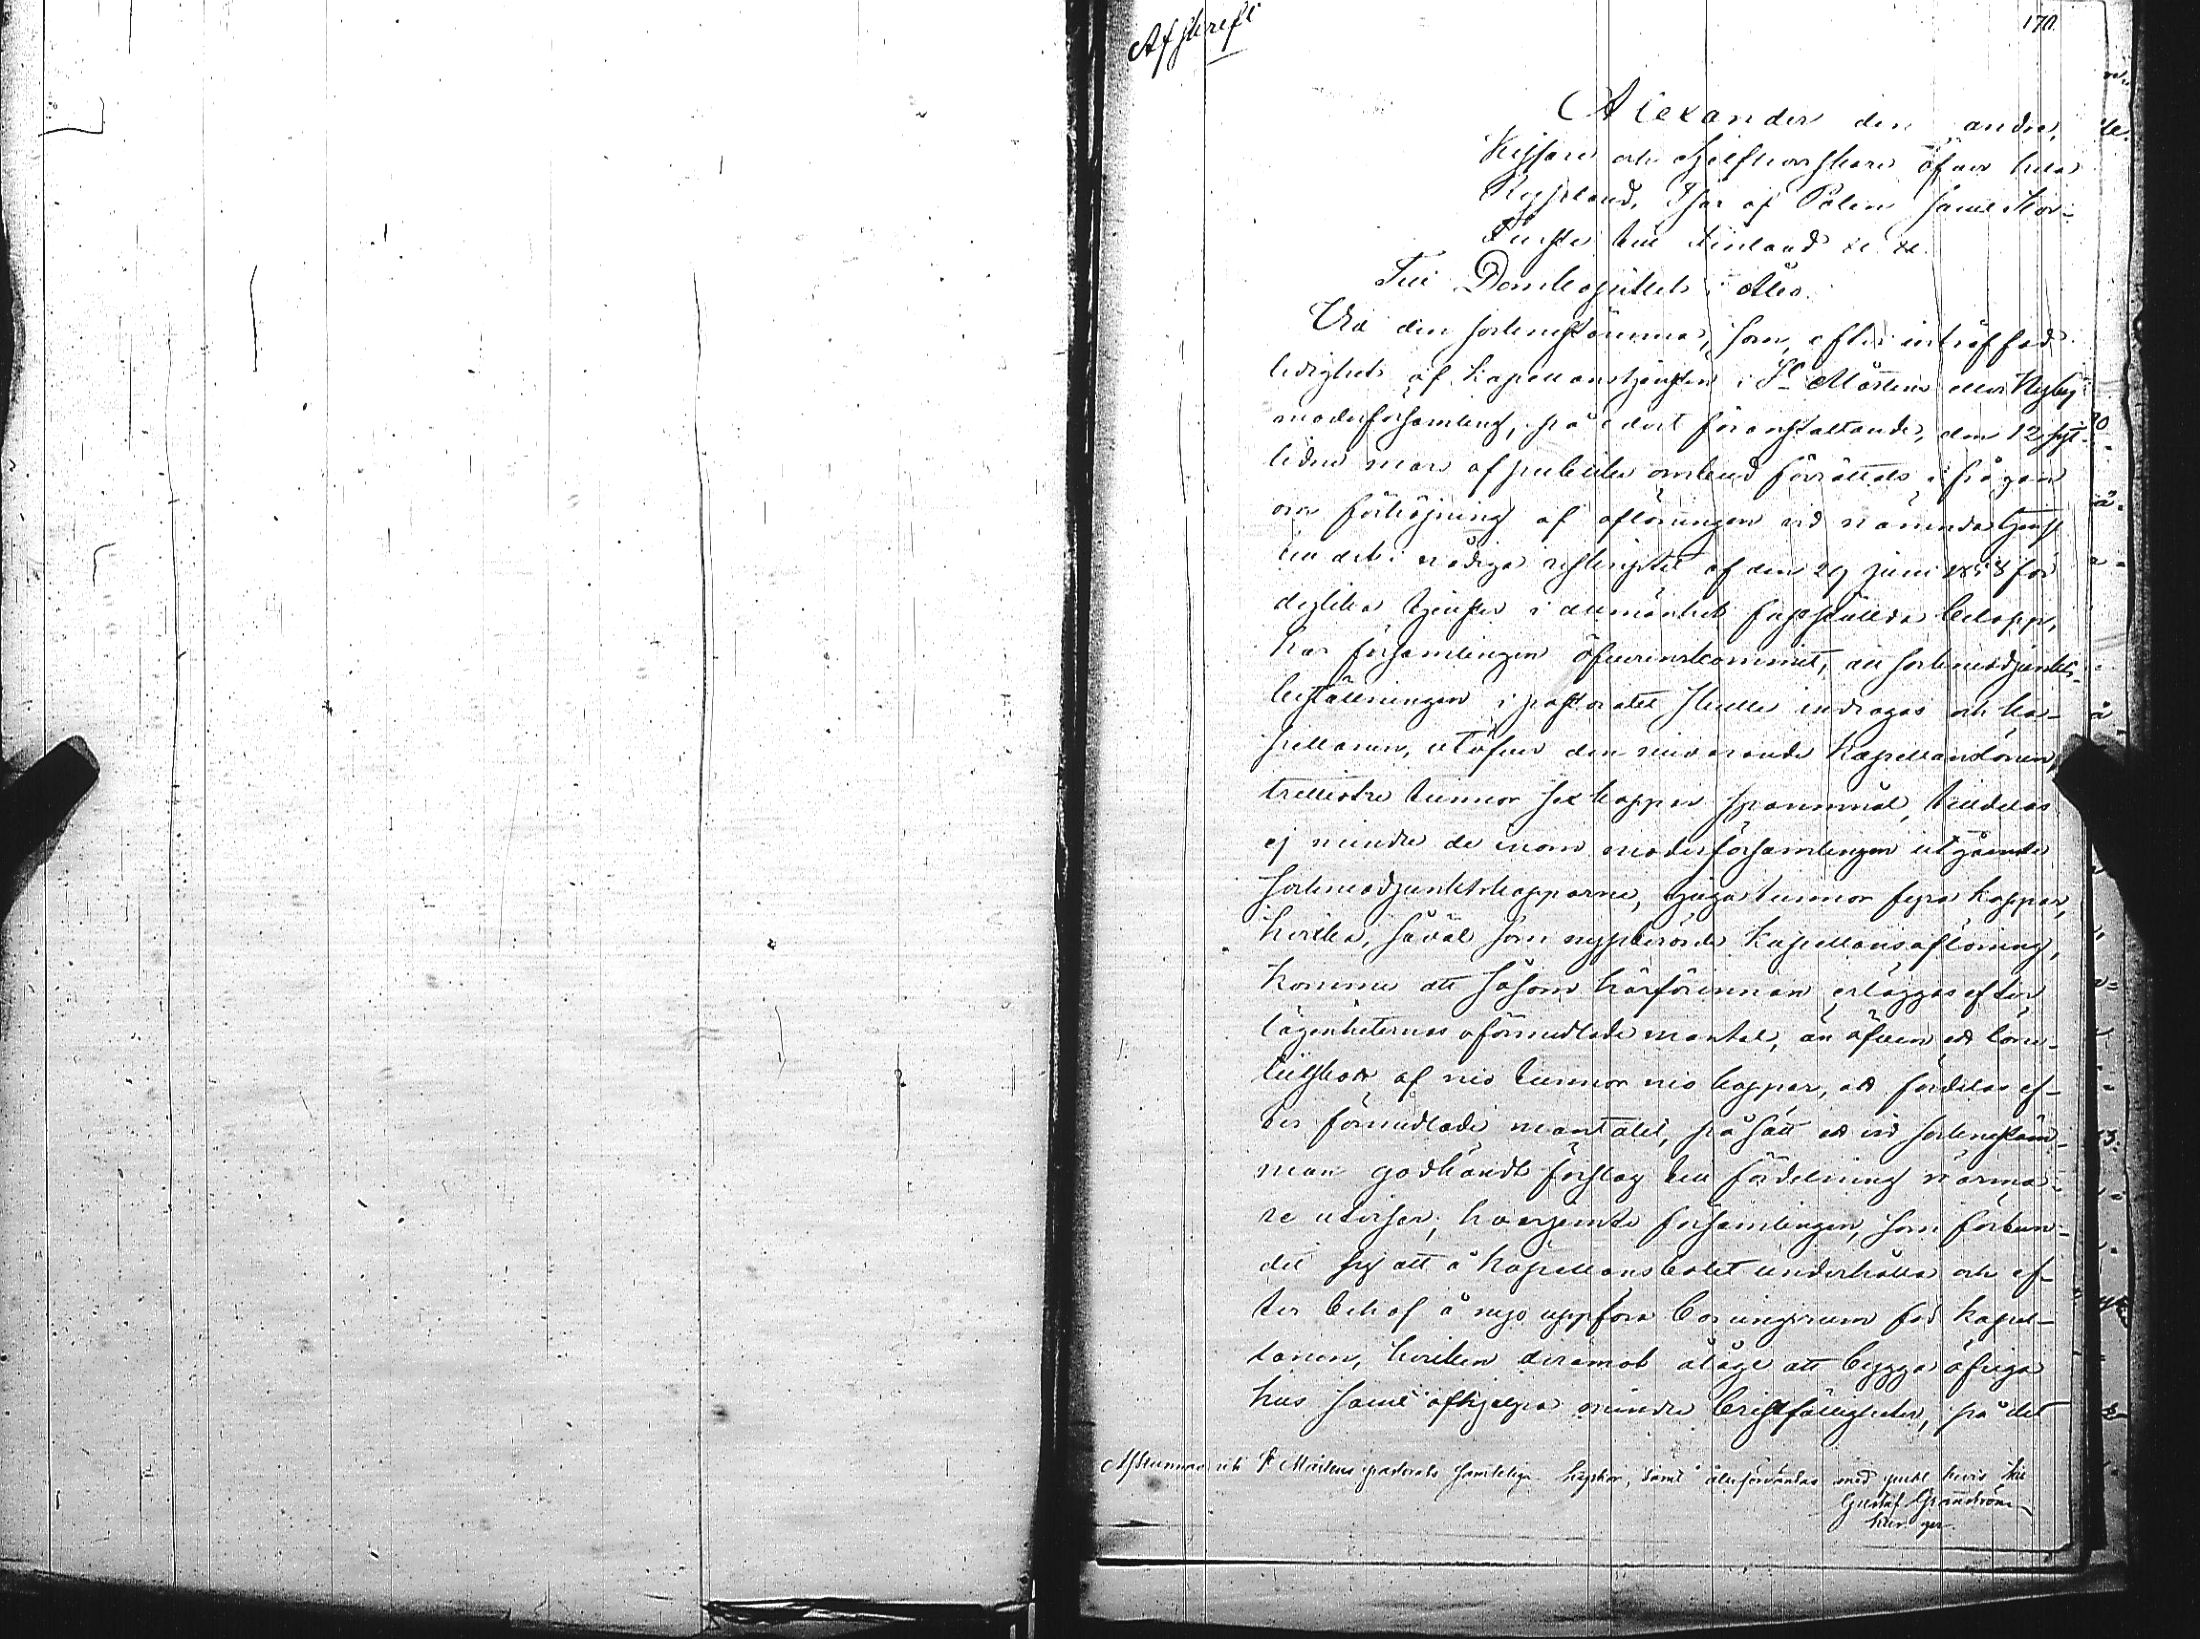 Afskrift
170.
Alexander den andre,
Kejsare och Sjelfherrskare öfver hela
Ryssland, Tsar af Polen samt Stor-
Furste till Finland &c. &c.
Till Domkapitlet i Åbo.
Vid den sockenstämma, som, efter inträffad
ledighet af kapellanstjensten i St Mårtens eller
moderförsamling, på edert föranstaltande, den 12 sist-
lidne mars af publikt ombud förrättats i frågan
om förhöjning af aflöningen vid nämnda tjenst
till det i nådiga reskriptet af den 29 juni 1858 för
deylika tjenster i allmänhet fastställda belopp,
har församlingen öfverenskommit, att sockneadjunkts-
beställningen i pastoratet skulle indragas och ka-
pellanen, utöfver den nuvarande kapellanslönen,
trettiotre tunnor sex kappar spanmål, tilldelas
ej mindre de inom moderförsamlingen utgående
sockneadjunktskapparne, tjugu tunnor fyra kappar,
hvilka, såväl som nyssberörde kapellansaflöning,
komme att såsom härförinnan erläggas efter
lägenheternas oförmedlade mantal, än äfven ett löne-
tillskott af nio tunnor nio kappar, att fördelas ef-
ter förmedlade mantalet, på sätt ett vid sockenstäm-
man godkändt förslag till fördelning närma-
re utvisar; hvarjemte församlingen, som förbun-
dit sig att å kapellansbolet underhålla och ef-
ter behof å nyo uppföra boningsrum för kapel-
lanen, hvilken deremot ålåge att bygga öfriga
hus samt afhjelpa mindre bristfälligheter, på det
St Mårtens pastorats samtelige samt med
Gustaf Granström